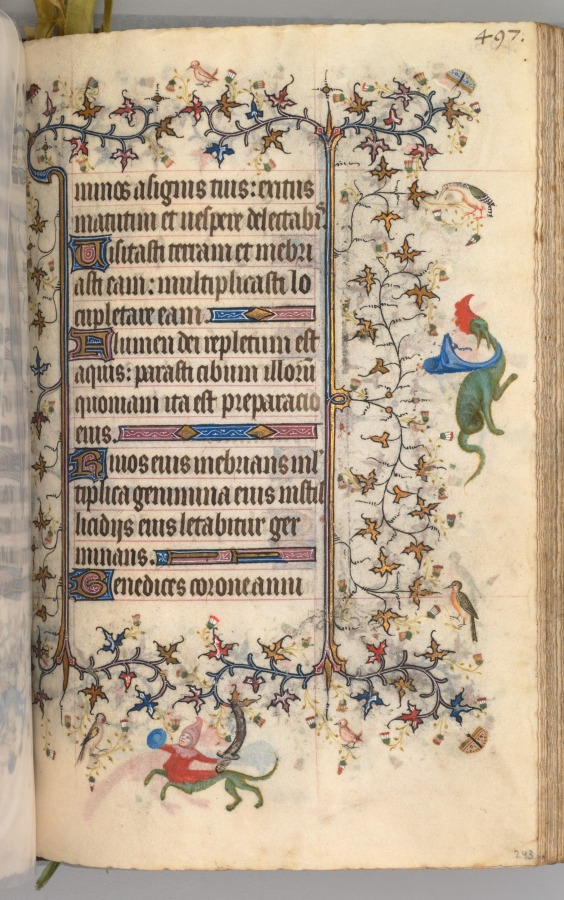 497.
minos a signis tuis: exitus
matutini et uespere delectabis
Uisitasti terram et inebri
asti eam: multiplicasti lo
cupletare eam.
Flumen dei repletum est
aquis: parasti cibum illorū
quoniam ita est preparacio
eius.
Riuos eius inebrians ml̾
tiplica genimina eius in stil
licidijs eius letabitur ger
minans.
Benedices corone anni
243